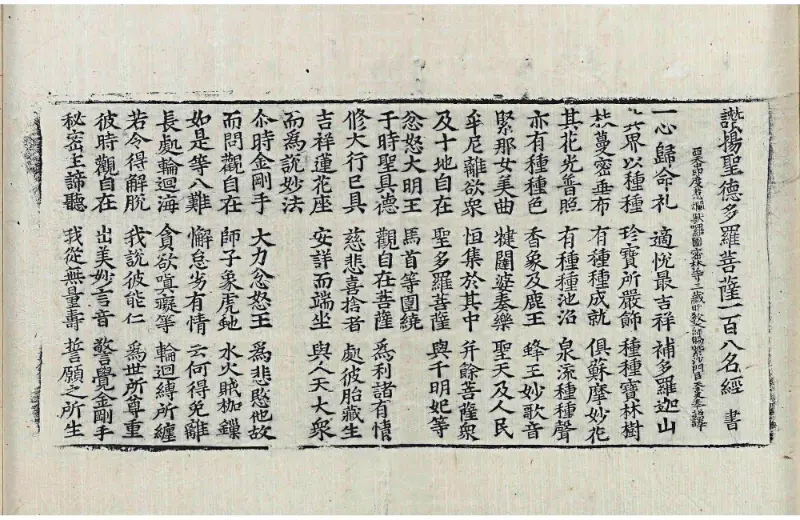 讚揚聖德多羅菩薩一百八名經 書
西天中印度惹爛馱囉國密林寺三藏明教大師賜紫沙門臣天息災奉 詔譯
一心歸命礼 適悅最吉祥 補多羅迦山
界以種種 珍寶所嚴飾 種種寶林樹
枝蔓密垂布 有種種成就 俱蘇摩妙花
其花光普照 有種種池沼 泉流種種聲
亦有種種色 香象及鹿王 蜂王妙歌音
緊那女美曲 犍闥婆奏樂 聖天及人民
牟尼離欲衆 恒集於其中 并餘菩薩衆
及十地自在 聖多羅菩薩 與千明妃等
忿怒大明王 馬首等圍繞
于時聖具德 觀自在菩薩 為利諸有情
修大行已具 慈悲喜捨者 處彼胎藏生
吉祥蓮花座 安詳而端坐 與人天大衆
而為說妙法
尒時金剛手 大力忿怒王 為悲愍他故
而問觀自在 師子象虎虵 水火賊枷鏁
如是等八難 懈怠劣有情 云何得免離
長處輪迴海 貪欲嗔癡等 輪迴縛所纏
若令得解脫 我說彼能仁 為世所尊重
彼時觀自在 出美妙言音 警覺金剛手
秘密主諦聽 我從無量壽 誓願之所生